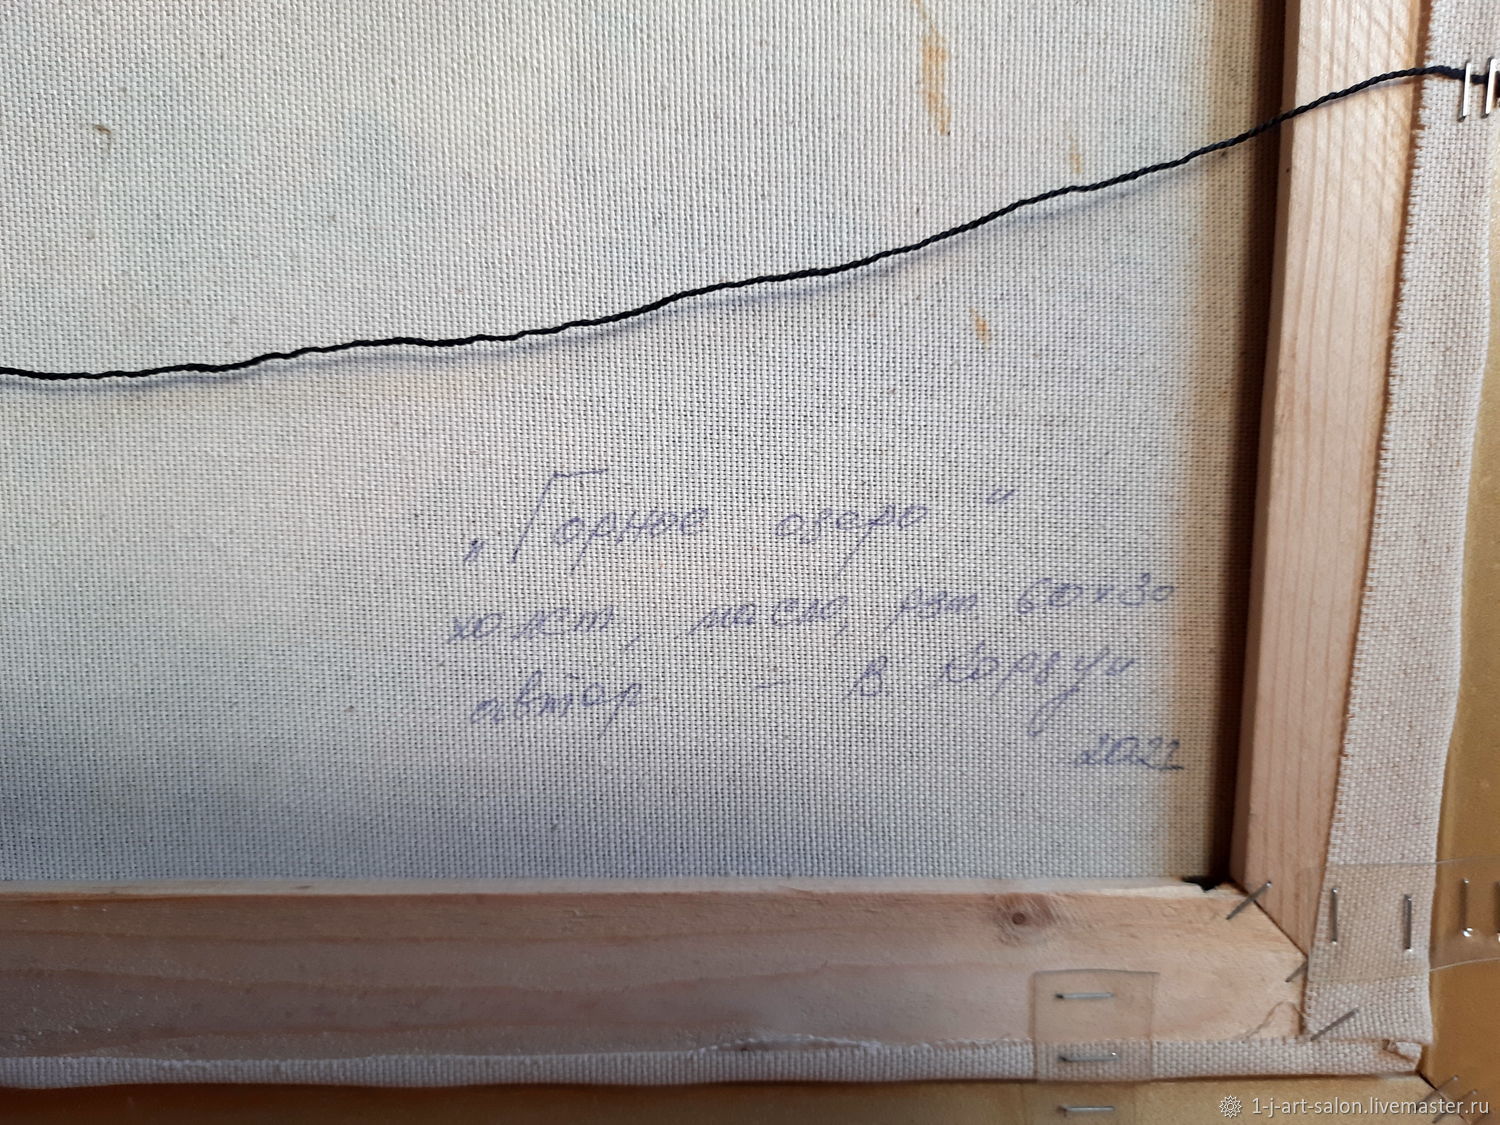 „Горное озеро“
холст, масло, рзм. 60х30
автор – В.
2022
1-j-art-salon.livemaster.ru